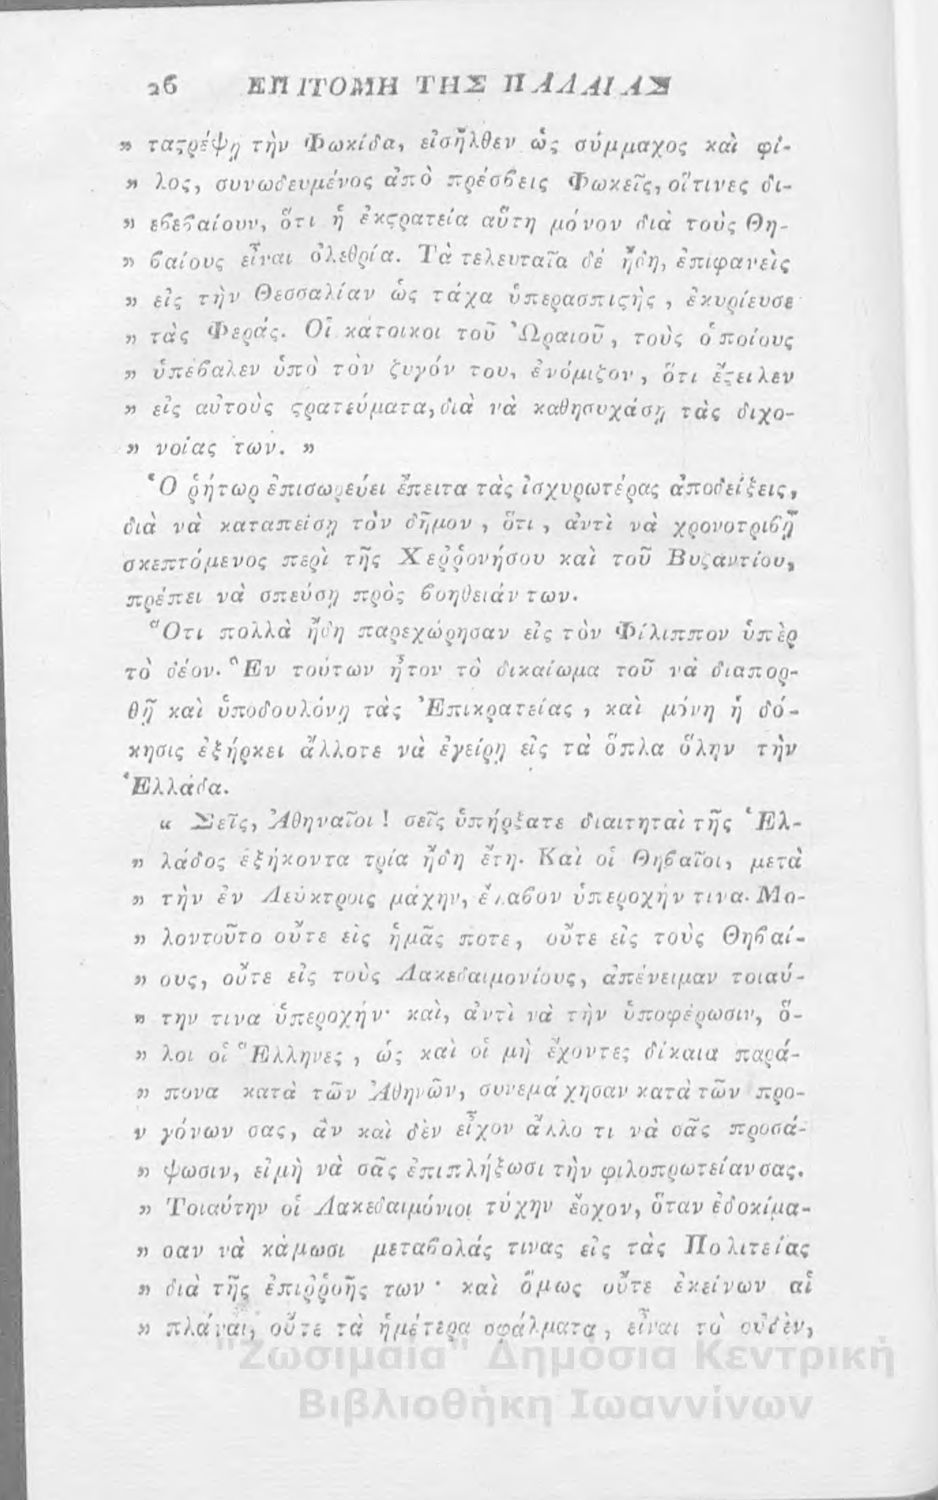 26 ΕΠΙΤΟΜΗ ΤΗΣ ΠΑΛΑΙΑΣ
» ταϛρέψῃ τὴν Φωκίδα, εἰσῆλθεν ὡς σύμμαχος καὶ φί-
» λος, συνωδευμένος ἀπὸ πρέσϐεις Φωκεῖς, οἵτινες δι-
» εϐεϐαίουν, ὅτι ἡ ἐκϛρατεία αὕτη μόνον διὰ τοὺς Θη-
» ϐαίους εἶναι ὀλεθρία. Τὰ τελευταῖα δὲ ἤδη, ἐπιφανεὶς
» εἰς τὴν Θεσσαλίαν ὡς τάχα ὑπερασπιϛὴς, ἐκυρίευσε
» τὰς Φεράς. Οἱ κάτοικοι τοῦ Ὠραιοῦ, τοὺς ὁποίους
» ὑπέϐαλεν ὑπὸ τὸν ζυγόν του, ἐνόμιζον, ὅτι ἔϛειλεν
» εἰς αὐτοὺς ϛρατεύματα, διὰ νὰ καθησυχάσῃ τὰς διχο-
» νοίας των. »
Ὁ ῥήτωρ ἐπισωρεύει ἔπειτα τὰς ἰσχυρωτέρας ἀποδείξεις,
διὰ νὰ καταπείσῃ τὸν δῆμον, ὅτι, ἀντὶ νὰ χρονοτριϐῇ
σκεπτόμενος περὶ τῆς Χεῤῥονήσου καὶ τοῦ Βυζαντίου,
πρέπει νὰ σπεύσῃ πρὸς ϐοήθειάν των.
Ὅτι πολλὰ ἤδη παρεχώρησαν εἰς τὸν Φίλιππον ὑπὲρ
τὸ δέον. Ἓν τούτων ἦτον τὸ δικαίωμα τοῦ νὰ διαπορ-
θῇ καὶ ὑποδουλόνῃ τὰς Ἐπικρατείας, καὶ μόνη ἡ δό-
κησις ἐξήρκει ἄλλοτε νὰ ἐγείρῃ εἰς τὰ ὅπλα ὅλην τὴν
Ἑλλάδα.
« Σεῖς, Ἀθηναῖοι! σεῖς ὑπήρξατε διαιτηταὶ τῆς Ἑλ-
» λάδος ἑξήκοντα τρία ἤδη ἔτη. Καὶ οἱ Θηϐαῖοι, μετὰ
» τὴν ἐν Λεύκτροις μάχην, ἔλαϐον ὑπεροχήν τινα. Μο-
» λοντοῦτο οὔτε εἰς ἡμᾶς ποτε, οὔτε εἰς τοὺς Θηϐαί-
» ους, οὔτε εἰς τοὺς Λακεδαιμονίους, ἀπένειμαν τοιαύ-
» την τινα ὑπεροχήν· καὶ, ἀντὶ νὰ τὴν ὑποφέρωσιν, ὅ-
» λοι οἱ Ἕλληνες, ὡς καὶ οἱ μὴ ἔχοντες δίκαια παρά-
» πονα κατὰ τῶν Ἀθηνῶν, συνεμάχησαν κατὰ τῶν προ-
» γόνων σας, ἂν καὶ δὲν εἶχον ἄλλο τι νὰ σᾶς προσά-
» ψωσιν, εἰμὴ νὰ σᾶς ἐπιπλήξωσι τὴν φιλοπρωτείαν σας.
» Τοιαύτην οἱ Λακεδαιμόνιοι τύχην ἔσχον, ὅταν ἐδοκίμα-
» σαν νὰ κάμωσι μεταϐολάς τινας εἰς τὰς Πολιτείας
» διὰ τῆς ἐπιῤῥοῆς των· καὶ ὅμως οὔτε ἐκείνων αἱ
» πλάναι, οὔτε τὰ ἡμέτερα σφάλματα, εἶναι τὸ οὐδὲν,
"Ζωσιμαία" Δημόσια Κεντρική
Βιβλιοθήκη Ιωαννίνων